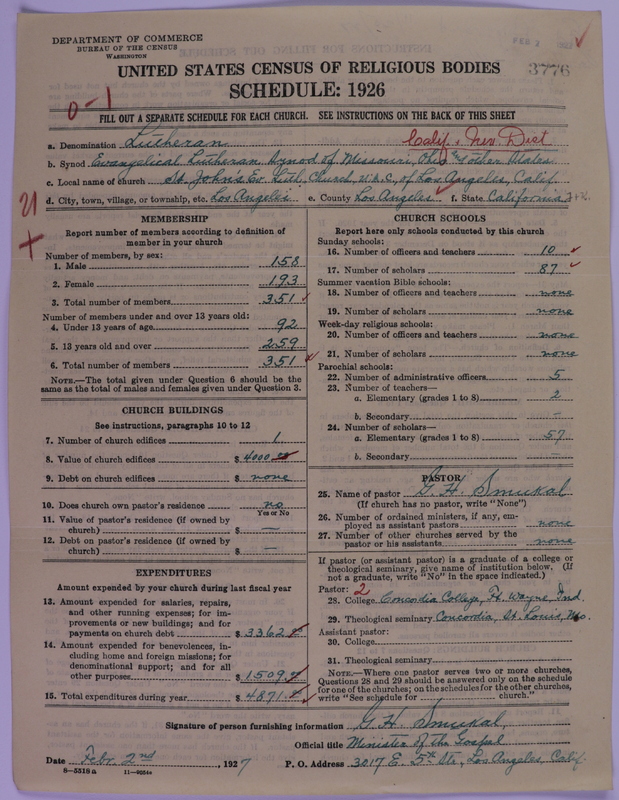 DEPARTMENT OF COMMERCE
BUREAU OF THE CENSUS
WASHINGTON
FEB 2
3776
UNITED STATES CENSUS OF RELIGIOUS BODIES
SCHEDULE: 1926
0-1
FILL OUT A SEPARATE SCHEDULE FOR EACH CHURCH. SEE INSTRUCTIONS ON THE BACK OF THIS SHEET
a. Denomination Lutheran Calif. & Nev. Dist
b. Synod Evangelical Lutheran Synod of Missouri, Ohio and other States
c. Local name of church St. John's Ev. Luth. Church, U.A.C., of Los Angeles, Calif.
d. City, town, village, or township, etc. Los Angeles e. County Los Angeles f. State California
21
MEMBERSHIP
Report number of members according to definition of
member in your church
Number of members, by sex:
1. Male 158
2. Female 193
3. Total number of members 351
Number of members under and over 13 years old:
4. Under 13 years of age 92
5. 13 years old and over 259
6. Total number of members 351
NOTE.—The total given under Question 6 should be
same as the total of males and females given under Question 3.
CHURCH BUILDINGS
See instructions, paragraphs 10 to 12
7. Number of church edifices 1
8. Value of church edifices $ 4000
9. Debt on church edifices $ none
10. Does church own pastor's residence? no
Yes or No
11. Value of pastor's residence (if owned by
church) $ —
12. Debt on pastor's residence (if owned by
church) $ —
EXPENDITURES
Amount expended by your church during last fiscal year
13. Amount expended for salaries, repairs,
and other running expenses; for im-
provements or new buildings; and for
payments on church debt $ 3362
14. Amount expended for benevolences, in-
cluding home and foreign missions; for
denominational support; and for all
other purposes $ 1509
15. Total expenditures during year $ 4871
CHURCH SCHOOLS
Report here only schools conducted by this church
Sunday schools:
16. Number of officers and teachers 10
17. Number of scholars 87
Summer vacation Bible schools:
18. Number of officers and teachers none
19. Number of scholars none
Week-day religious schools:
20. Number of officers and teachers none
21. Number of scholars none
Parochial schools:
22. Number of administrative officers 5
23. Number of teachers—
a. Elementary (grades 1 to 8) 2
b. Secondary —
24. Number of scholars—
a. Elementary (grades 1 to 8) 57
b. Secondary —
PASTOR
25. Name of pastor G. H. Smukal
(If church has no pastor, write "None")
26. Number of ordained ministers, if any, em-
ployed as assistant pastors none
27. Number of other churches served by the
pastor or his assistants none
If pastor (or assistant pastor) is a graduate of a college or
theological seminary, give name of institution below. (If
not a graduate, write "No" in the space indicated.)
Pastor: 2
28. College Concordia College, Ft. Wayne, Ind.
29. Theological seminary Concordia, St. Louis, Mo.
Assistant pastor:
30. College
31. Theological seminary
NOTE.—Where one pastor serves two or more churches,
Questions 28 and 29 should be answered only on the schedule
for one of the churches; on the schedules for the other churches,
write "See schedule for church."
Signature of person furnishing information G. H. Smukal
Official title Minister of the Gospel
Date Febr. 2nd, 1927 P. O. Address 3017 E. 5th Str., Los Angeles, Calif.
8—5518 a 11—9054a